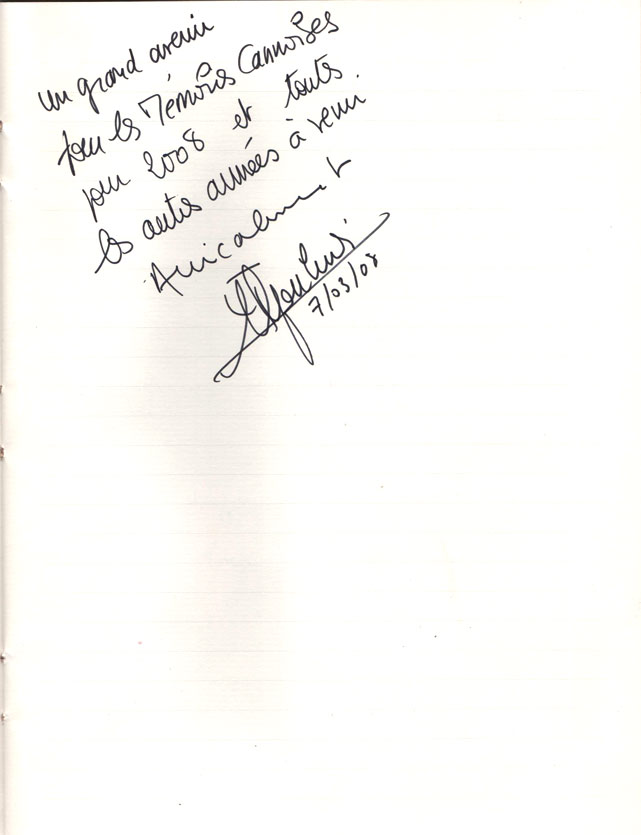 un grand avenir
pour les Mémoires Cannoises
pour 2008 et toutes
les autres années à venir
Amicalement
7/03/08